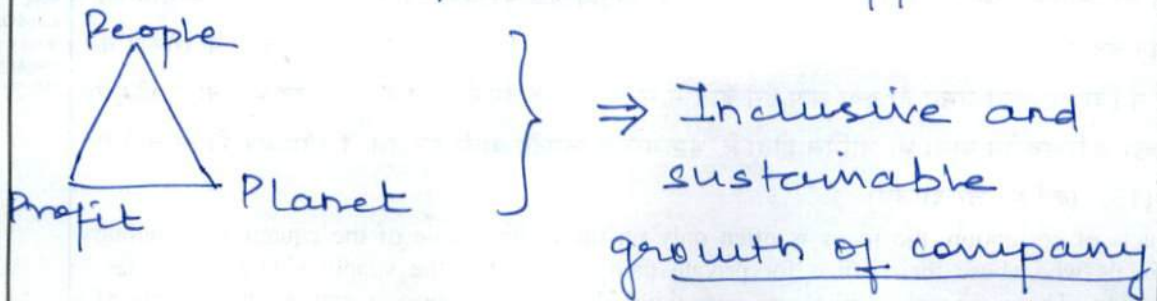 People
Profit
Planet
⇒ Inclusive and
sustainable
growth of company